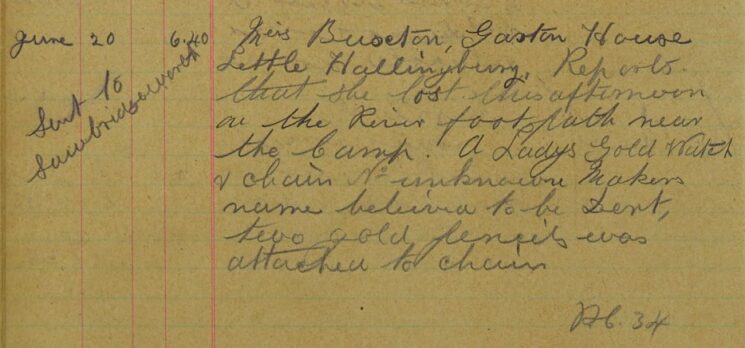 June 20 6.40 Miss Buxton, Gaston House
Little Hallingbury, Reports
that she lost this afternoon
on the River footpath near
the Camp. A Ladys Gold Watch
& chain No unknown Makers
name believed to be Dent,
two gold pencils was
attached to chain
P.C. 34
Sent to
Sawbridgeworth